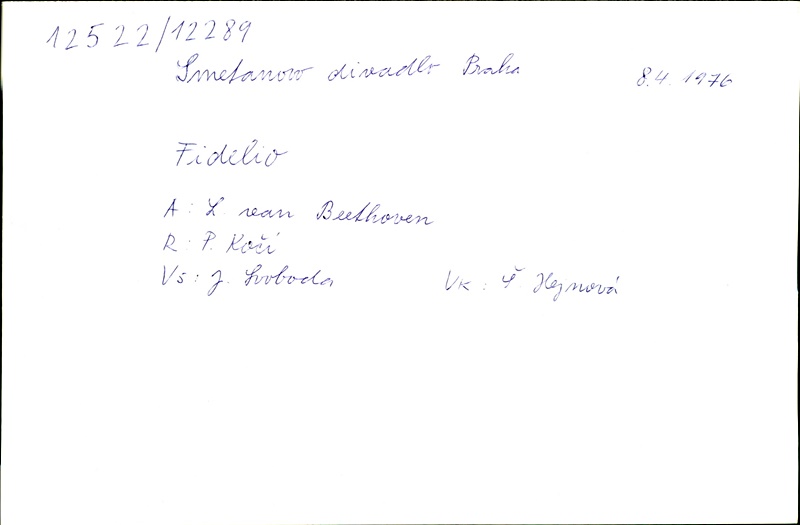 12522/12289
Smetanovo divadlo Praha 8.4. 1976
Fidelio
A : L. van Beethoven
R : P. Kočí
Vs : J. Svoboda Vk : Š. Hejnová